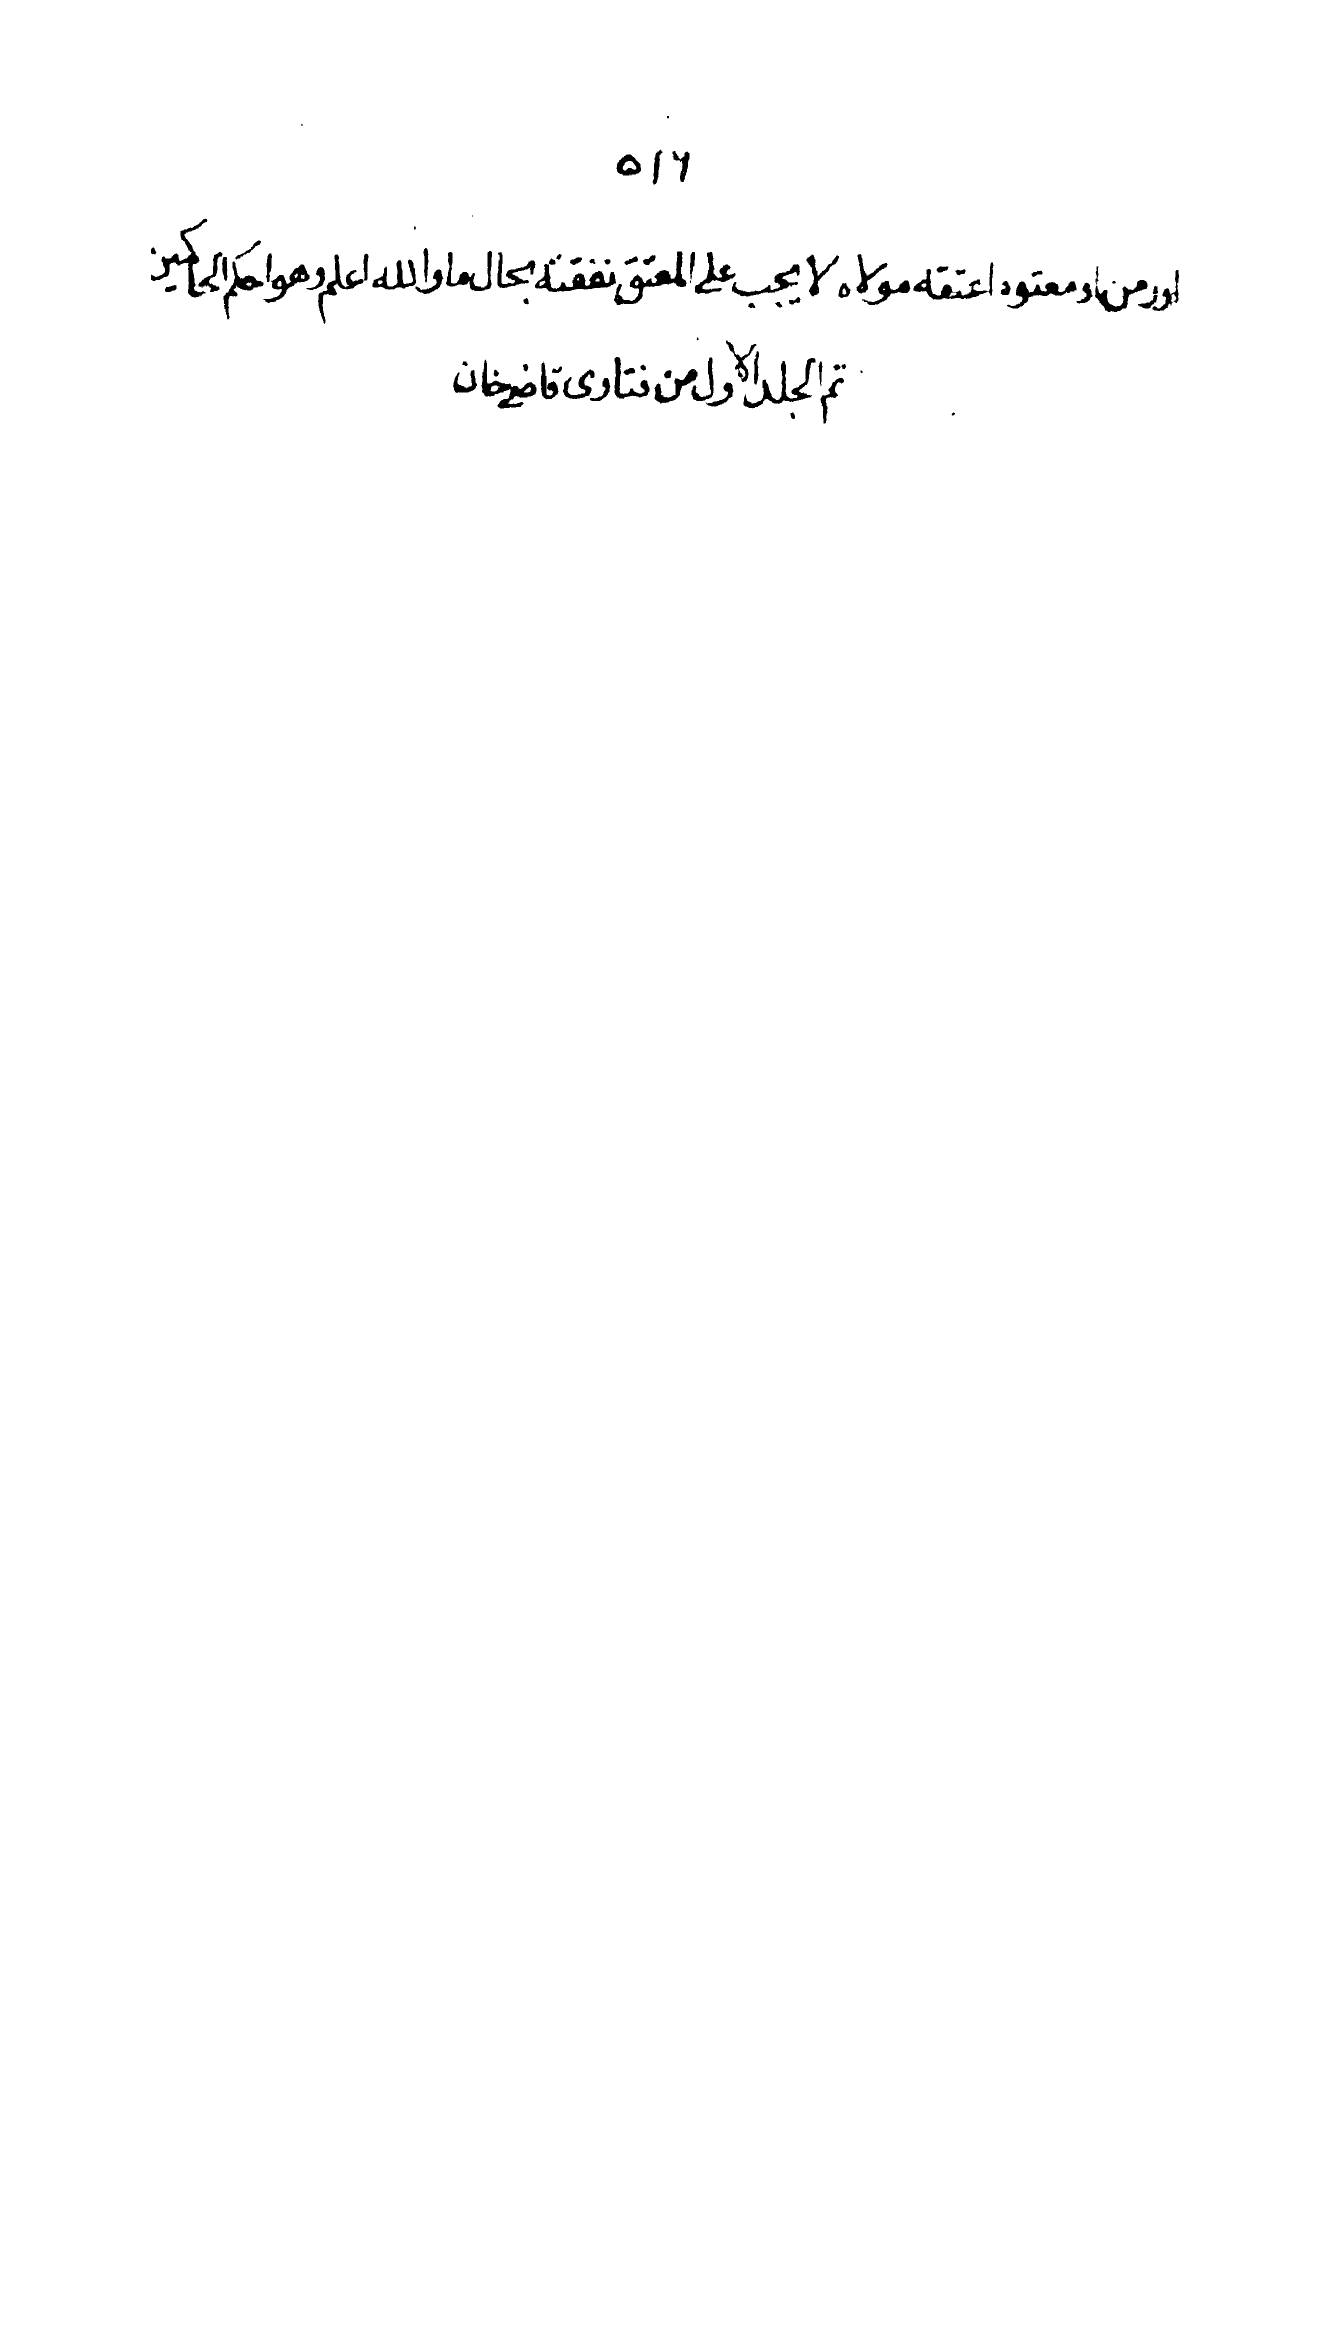 ٥١٦
او زمن او معتوه اعتقه مولاه لا يجب على المعتق نفقته بحال ما والله اعلم وهو احكم الحاكمين
تم الجلد الاول من فتاوى قاضى خان